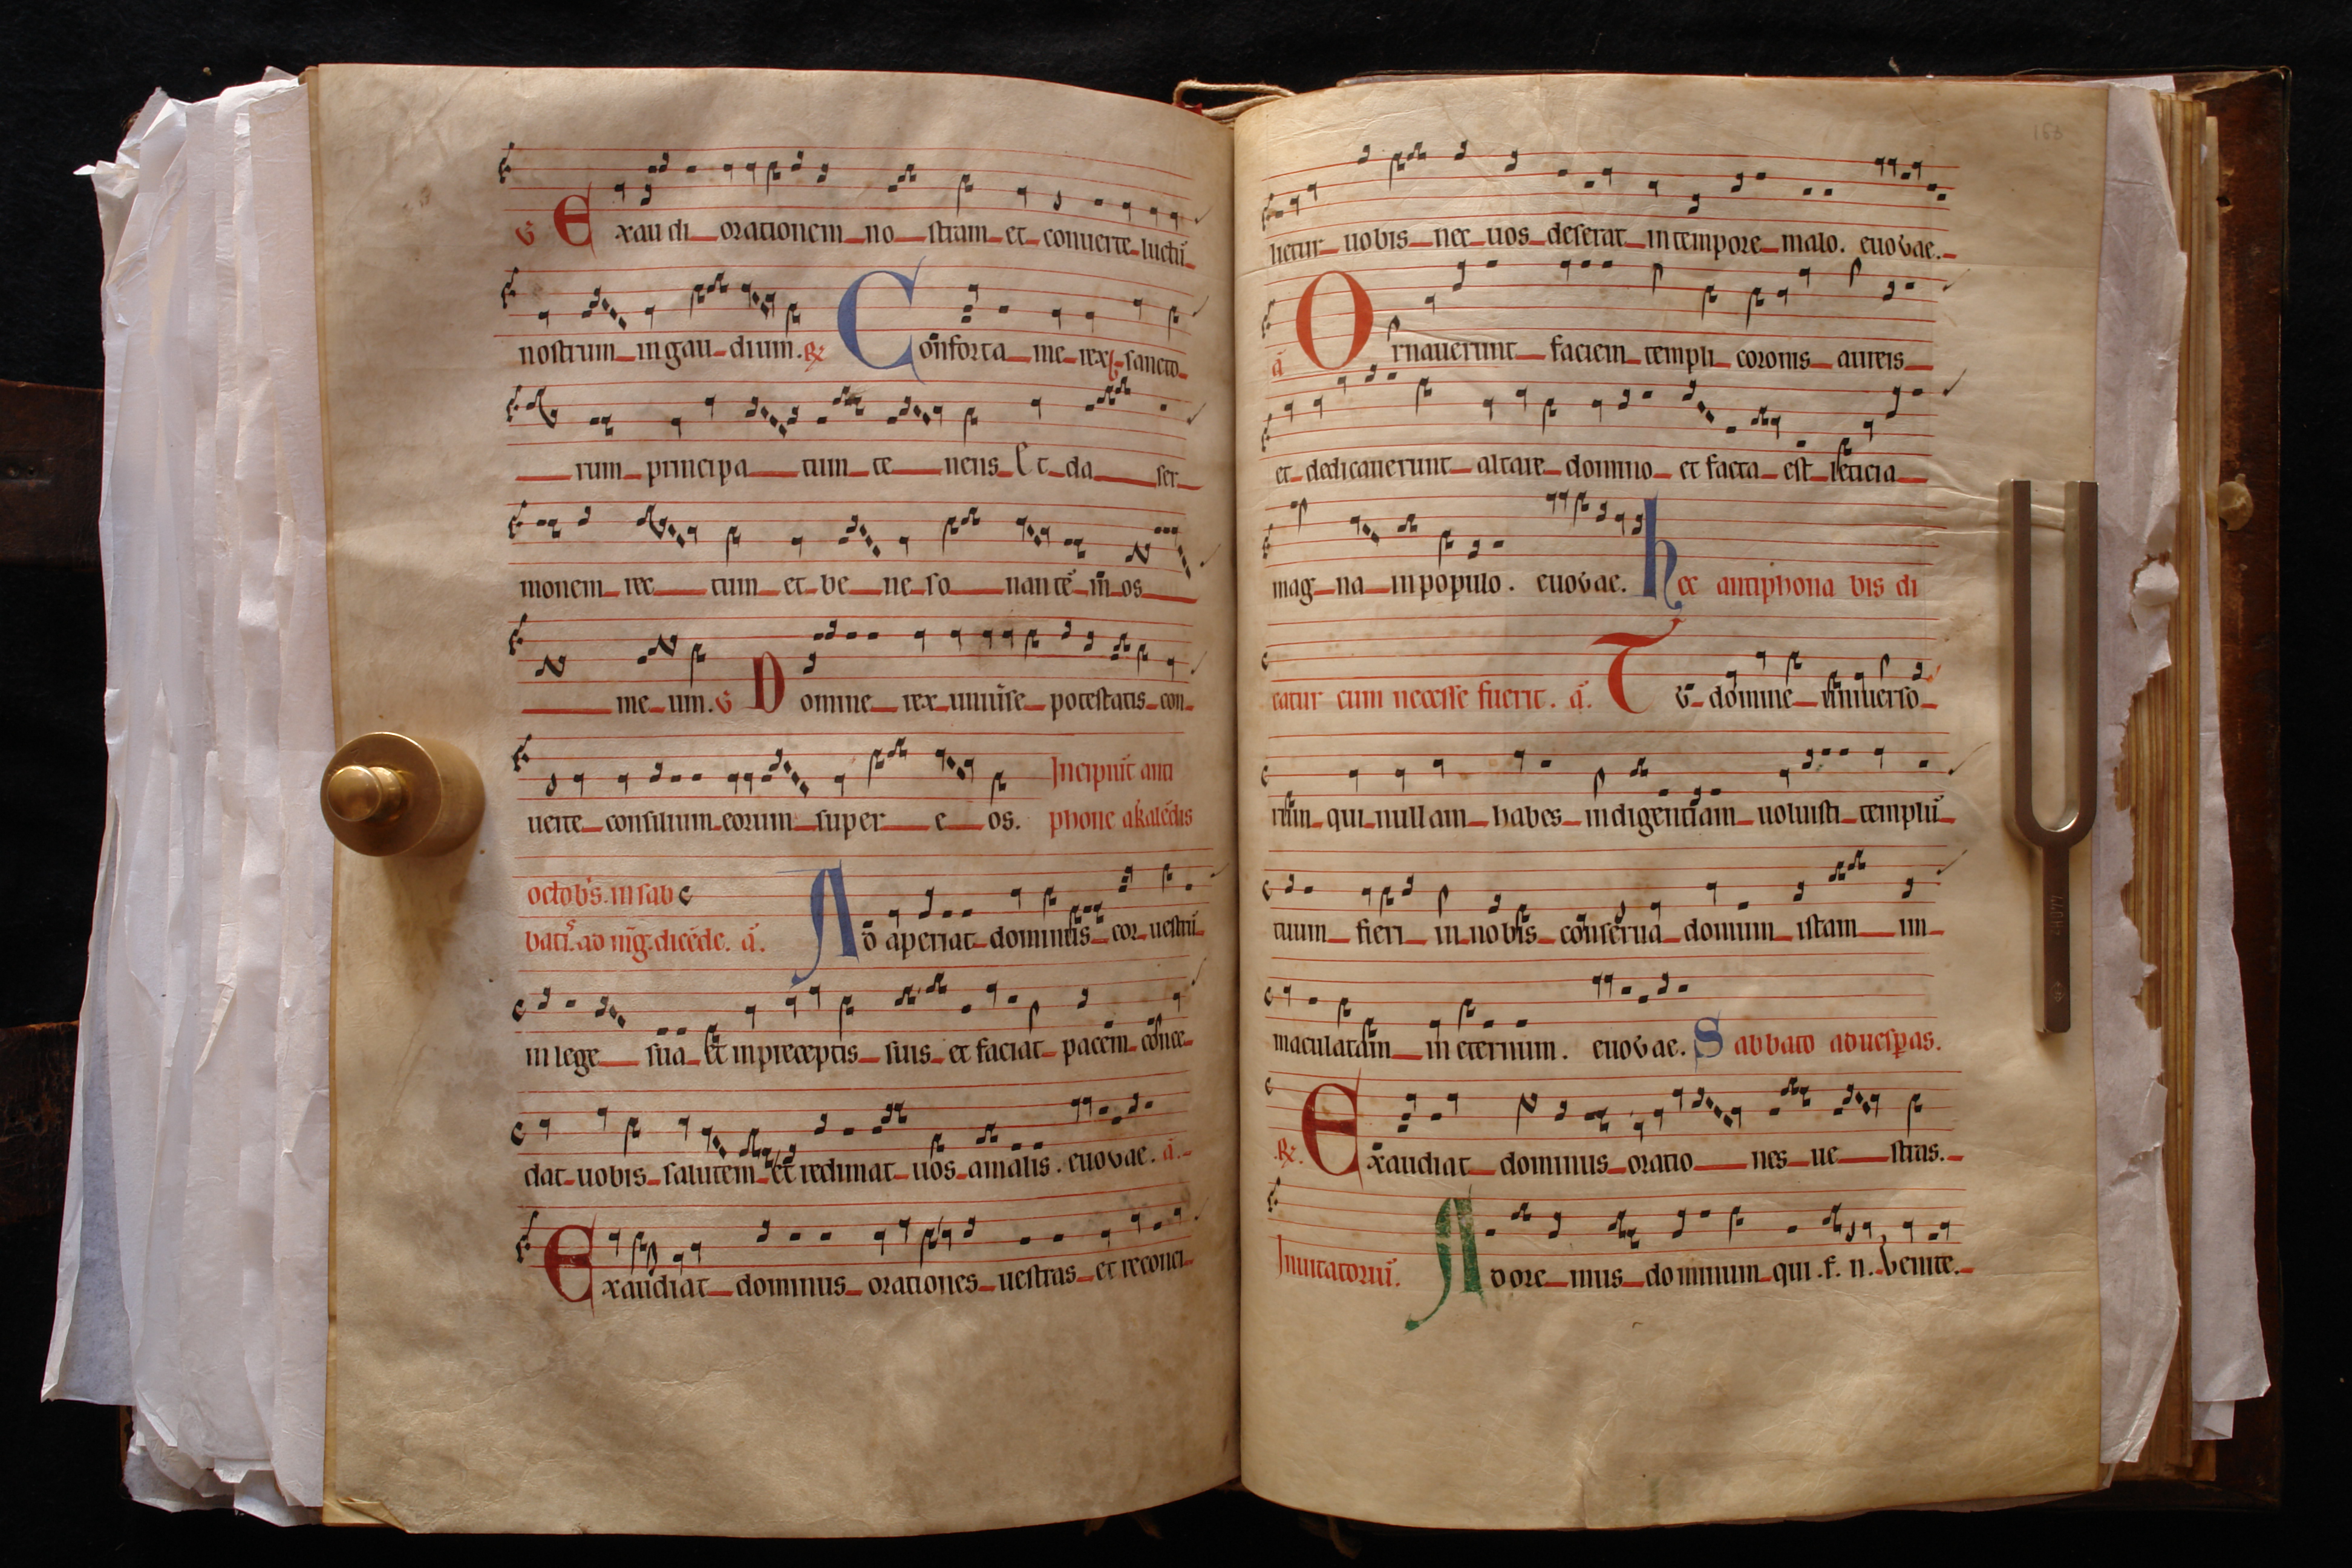 ℣ Exaudi orationem nostram et conuerte luctū
nostrum in gaudium. ℟ Conforta me rex sancto
rum principatum tenens Et da ser
monem rectum et bene sonantē in os
meum. ℣ Domine rex uniuerse potestatis con
uerte consilium eorum super eos. Incipiūt anti
phone a kalēdis
octobris. in sab
bato ad mag. dicēde. a. Adaperiat dominus cor uestrū
in lege sua et in preceptis suis et faciat pacem conce
dat uobis salutem et redimat uos a malis. euouae. a.
Exaudiat dominus orationes uestras et reconci
lietur uobis nec uos deserat in tempore malo. euouae.
a Ornauerunt faciem templi coronis aureis
et dedicauerunt altare domino et facta est leticia
magna in populo. euouae. hec antiphona bis di
catur cum necesse fuerit. a. Tu domine uniuerso
rum qui nullam habes indigentiam uoluisti templū
tuum fieri in nobis conserua domum istam im
maculatam in eternum. euouae. Sabbato ad uesperas.
℟. Exaudiat dominus orationes uestras.
Inuitatoriū. Adoremus dominum qui .f. n. Venite.